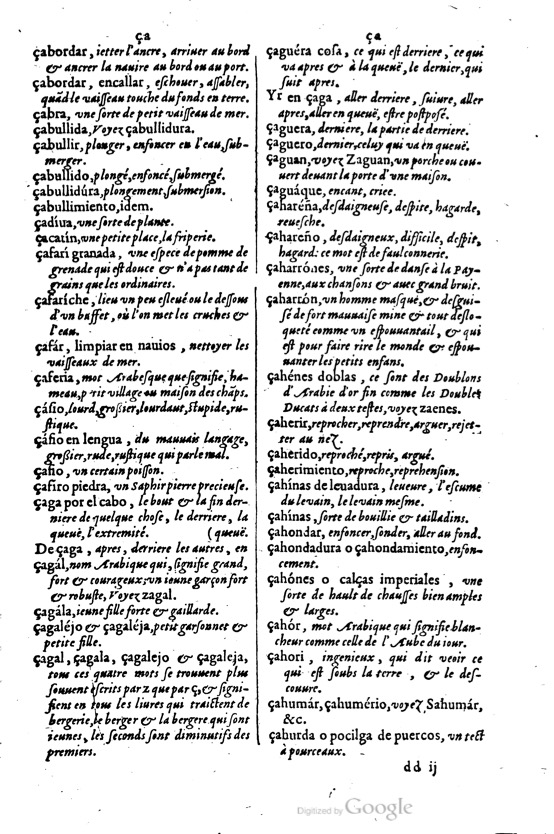 ça
çabordar, ietter l'ancre, arriuer au bord
& ancrer la nauire au bord ou au port.
çabordar, encallar, eschouer, assabler,
quãd le vaisseau touche du fonds en terre.
çabra, vne sorte de petit vaisseau de mer.
çabullida, Voyez çabullidura.
çabullir, plonger, enfoncer en l'eau, sub-
merger.
çabullido, plongé, enfoncé, submergé.
çabullidúra, plongement, submersion.
çabullimiento, idem.
çadiua, vne sorte de plante.
çacatín, vne petite place, la friperie.
çafarí granada, vne espece de pomme de
grenade qui est douce & n'a pas tant de
grains que les ordinaires.
çafaríche, lieu vn peu esleué ou le dessous
d'vn buffet, où l'on met les cruches &
l'eau.
çafár, limpiar en nauios, nettoyer les
vaisseaux de mer.
çafería, mot Arabesque que signifie, ha-
meau, petit village ou maison des chãps.
çáfio, lourd, grossier, lourdaut, stupide, ru-
stique.
çáfio en lengua, du mauuais langage,
grossier, rude, rustique qui parle mal.
çafio, vn certain poisson.
çafiro piedra, vn Saphir pierre precieuse.
çaga por el cabo, le bout & la fin der-
niere de quelque chose, le derriere, la
queuë, l'extremité. (queuë.
De çaga, apres, derriere les autres, en
çagál, nom Arabique qui, signifie grand,
fort & courageux: vn ieune garçon fort
& robuste, Voyez zagal.
çagála, ieune fille forte & gaillarde.
çagaléjo & çagaléja, petit garsonnet &
petite fille.
çagal, çagala, çagalejo & çagaleja,
tous ces quatre mots se trouuent plus
souuent escrits par z que par ç, & signi-
fient en tous les liures qui traictent de
bergerie, le berger & la bergere qui sont
ieunes, les seconds sont diminutifs des
premiers.
ça
çaguéra cosa, ce qui est derriere, ce qui
va apres & à la queuë, le dernier, qui
suit apres.
Yr en çaga, aller derriere, suiure, aller
apres, aller en queuë, estre postposé.
çaguera, derniere, la partie de derriere.
çaguero, dernier, celuy qui va en queuë.
çaguan, voyez Zaguan, vn porche ou cou-
uert deuant la porte d'vne maison.
çaguáque, encant, criee.
çahareña, desdaigneuse, despite, hagarde,
reuesche.
çahareño, desdaigneux, difficile, despit,
hagard: ce mot est de faulconnerie.
çaharrónes, vne sorte de danse à la Pay-
enne, aux chansons & auec grand bruit.
çaharrón, vn homme masqué, & desgui-
sé de fort mauuaise mine & tout deslo-
queté comme vn espouuantail, & qui
est pour faire rire le monde & espou-
uanter les petits enfans.
çahénes doblas, ce sont des Doublons
d'Arabie d'or fin comme les Doubles
Ducats à deux testes, voyez zaenes.
çaherir, reprocher, reprendre, arguer, rejet-
ter au nez.
çaherido, reproché, repris, argué.
çaherimiento, reproche, reprehension.
çahínas de leuadura, leueure, l'escume
du leuain, le leuain mesme.
çahínas, sorte de bouillie & tailladins.
çahondar, enfoncer, sonder, aller au fond.
çahondadura o çahondamiento, enfon-
cement.
çahónes o calças imperiales, vne
sorte de hault de chausses bien amples
& larges.
çahór, mot Arabique qui signifie blan-
cheur comme celle de l'Aube du iour.
çahori, ingenieux, qui dit veoir ce
qui est soubs la terre, & le des-
couure.
çahumár, çahumério, voyez Sahumár,
&c.
çahurda o pocilga de puercos, vn tect
à pourceaux.
dd ij
Digitized by Google